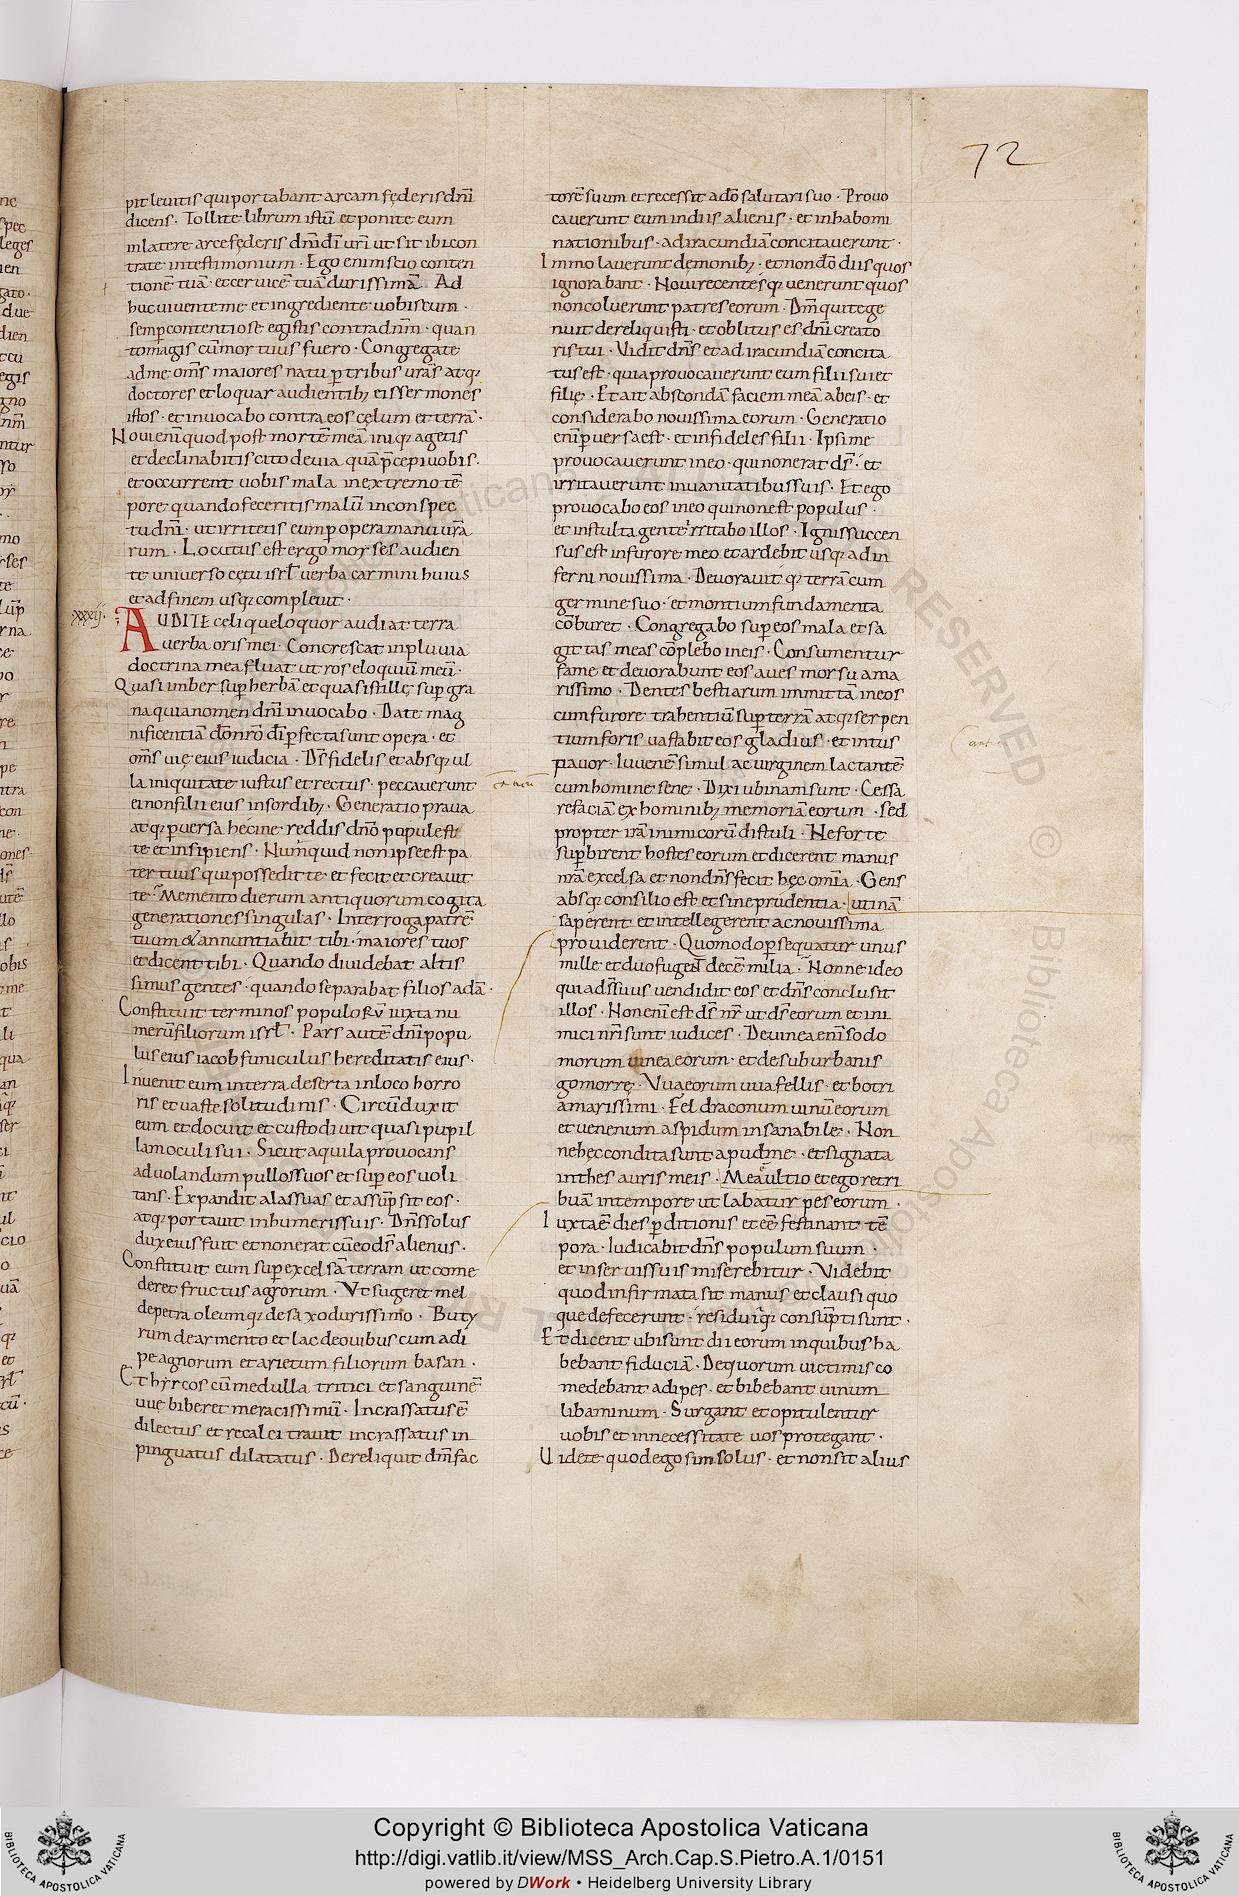 72
pit levitis qui portabant arcam fęderis dn̄i
dicens · Tollite librum istū et ponite eum
in latere arce fęderis dn̄i dī vr̄i ut sit ibi con
tra te in testimonium · Ego enim scio conten
tionē tuā · et cervicē tuā durissimā · Ad
huc vivente me et ingrediente vobiscum ·
semp contentiose egistis contra dn̄m · quan
to magis cū mortuus fuero · Congregate
ad me om̄s maiores natu p tribus vr̄as atq;
doctores et loquar audientib; eis sermones
istos · et invocabo contra eos cęlum et terrā ·
Novi enī quod post mortē meā iniq; agetis
et declinabitis cito de via quā p̄cepi vobis ·
et occurrent vobis mala in extremo tē
pore · quando feceritis malū in conspec
tu dn̄i · ut irritetis eum p opera manuū vr̄a
rum · Locutus est ergo moyses audien
te universo cętu isrl̄ verba carminis huius
et ad finem usq; complevit ·
xxxij ·
AUDITE celi que loquor audiat terra
verba oris mei · Concrescat in pluvia
doctrina mea fluat ut ros eloquiū meū ·
Quasi imber sup herbā et quasi stille sup gra
na quia nomen dn̄i invocabo · Date mag
nificentiā dō nr̄o dī pfecta sunt opera · et
om̄s vię eius iudicia · Dī fidelis et absq; ul
la iniquitate iustus et rectus · peccaverunt
ei non filii eius in sordib; · Generatio prava
atq; pversa hecine reddis dn̄o popule stul
te et insipiens · Numquid non ipse est pa
ter tuus qui possedit te et fecit et creavit
te · Memento dierum antiquorum cogita
generationes singulas · Interroga patrē
tuum & annuntiabit tibi · maiores tuos
et dicent tibi · Quando dividebat altis
simus gentes · quando separabat filios adā ·
Constituit terminos populoRū iuxta nu
merū filiorum isrl̄ · Pars autē dn̄i popu
lus eius iacob funiculus hereditatis eius ·
Invenit eum in terra deserta in loco horro
ris et vaste solitudinis · Circūduxit
eum et docuit et custodivit quasi pupil
lam oculi sui · Sicut aquila provocans
ad volandum pullos suos et sup eos voli
tans · Expandit alas suas et assūpsit eos ·
atq; portavit in humeris suis · Dn̄s solus
dux eius fuit et non erat cū eo ds̄ alienus ·
Constituit eum sup excelsā terram ut come
deret fructus agrorum · Ut sugeret mel
de petra oleumq; de saxo durissimo · Buty
rum de armento et lac de ovibus cum adi
pe agnorum et arietum filiorum basan ·
Et hyrcos cū medulla tritici et sanguinē
uvę biberet meracissimū · Incrassatus ē
dilectus et recalcitravit incrassatus in
pinguatus dilatatus · Dereliquit dm̄ fac
torē suum et recessit a dō salutari suo · Provo
caverunt eum in diis alienis · et in habomi
nationibus · ad iracundiā concitaverunt ·
Immolaverunt dęmonib; · et non dō diis quos
ignorabant · Novi recentesq; venerunt quos
non coluerunt patres eorum · Dm̄ qui te ge
nuit dereliquisti · et oblitus es dn̄i creato
ris tui · Vidit dn̄s et ad iracundiā concita
tus est · quia provocaverunt eum filii sui et
filię · Et ait abscondā faciem meā ab eis · et
considerabo novissima eorum · Generatio
enī pversa est · et infideles filii · Ipsi me
provocaverunt in eo · qui non erat ds̄ · et
irritaverunt in vanitatibus suis · Et ego
provocabo eos in eo qui non est populus ·
et in stulta gente irritabo illos · Ignis succen
sus est in furore meo et ardebit usq; ad in
ferni novissima · Devoravitq; terrā cum
germine suo · et montium fundamenta
cōburet · Congregabo sup eos mala et sa
gittas meas cōplebo in eis · Consumentur
fame et devorabunt eos aves morsu ama
rissimo · Dentes bestiarum immittā in eos
cum furore trahentiū sup terrā atq; serpen
tium foris vastabit eos gladius · et intus
pavor · Iuvenē simul ac virginem lactantē
cum homine sene · Dixi ubinam sunt · Cessa
re faciā ex hominib; memoriā eorum · Sed
propter irā inimicorū distuli · Ne forte
supbirent hostes eorum et dicerent manus
nr̄a excelsa et non dn̄s fecit hęc om̄ia · Gens
absq; consilio est et sine prudentia · utinā
saperent et intellegerent ac novissima
providerent · Quomodo psequatur unus
mille et duo fugent decē milia · Nonne ideo
quia ds̄ suus vendidit eos et dn̄s conclusit
illos · Non enī est ds̄ nr̄ ut ds̄ eorum et ini
mici nr̄i sunt iudices · De vinea enī sodo
morum vinea eorum · et de suburbanis
gomorrę · Uva eorum uva fellis · et botri
amarissimi · Fel draconum vinū eorum
et venenum aspidum insanabile · Non
ne hęc condita sunt apud me · et signata
in thesauris meis · Mea ē ultio et ego retri
buā in tempore ut labatur pes eorum ·
Iuxta ē dies pditionis et eē festinant tē
pora · Iudicabit dn̄s populum suum ·
et in servis suis miserebitur · Videbit
quod infirmata sit manus et clausi quo
que defecerunt · residuiq; consūpti sunt ·
Et dicent ubi sunt dii eorum in quibus ha
bebant fiduciā · De quorum victimis co
medebant adipes · et bibebant vinum
libaminum · Surgant et opitulentur
vobis et in necessitate vos protegant ·
Videte quod ego sim solus · et non sit alius
Copyright © Biblioteca Apostolica Vaticana
http://digi.vatlib.it/view/MSS_Arch.Cap.S.Pietro.A.1/0151
powered by DWork • Heidelberg University Library
BIBLIOTECA APOSTOLICA VATICANA
BIBLIOTECA APOSTOLICA VATICANA